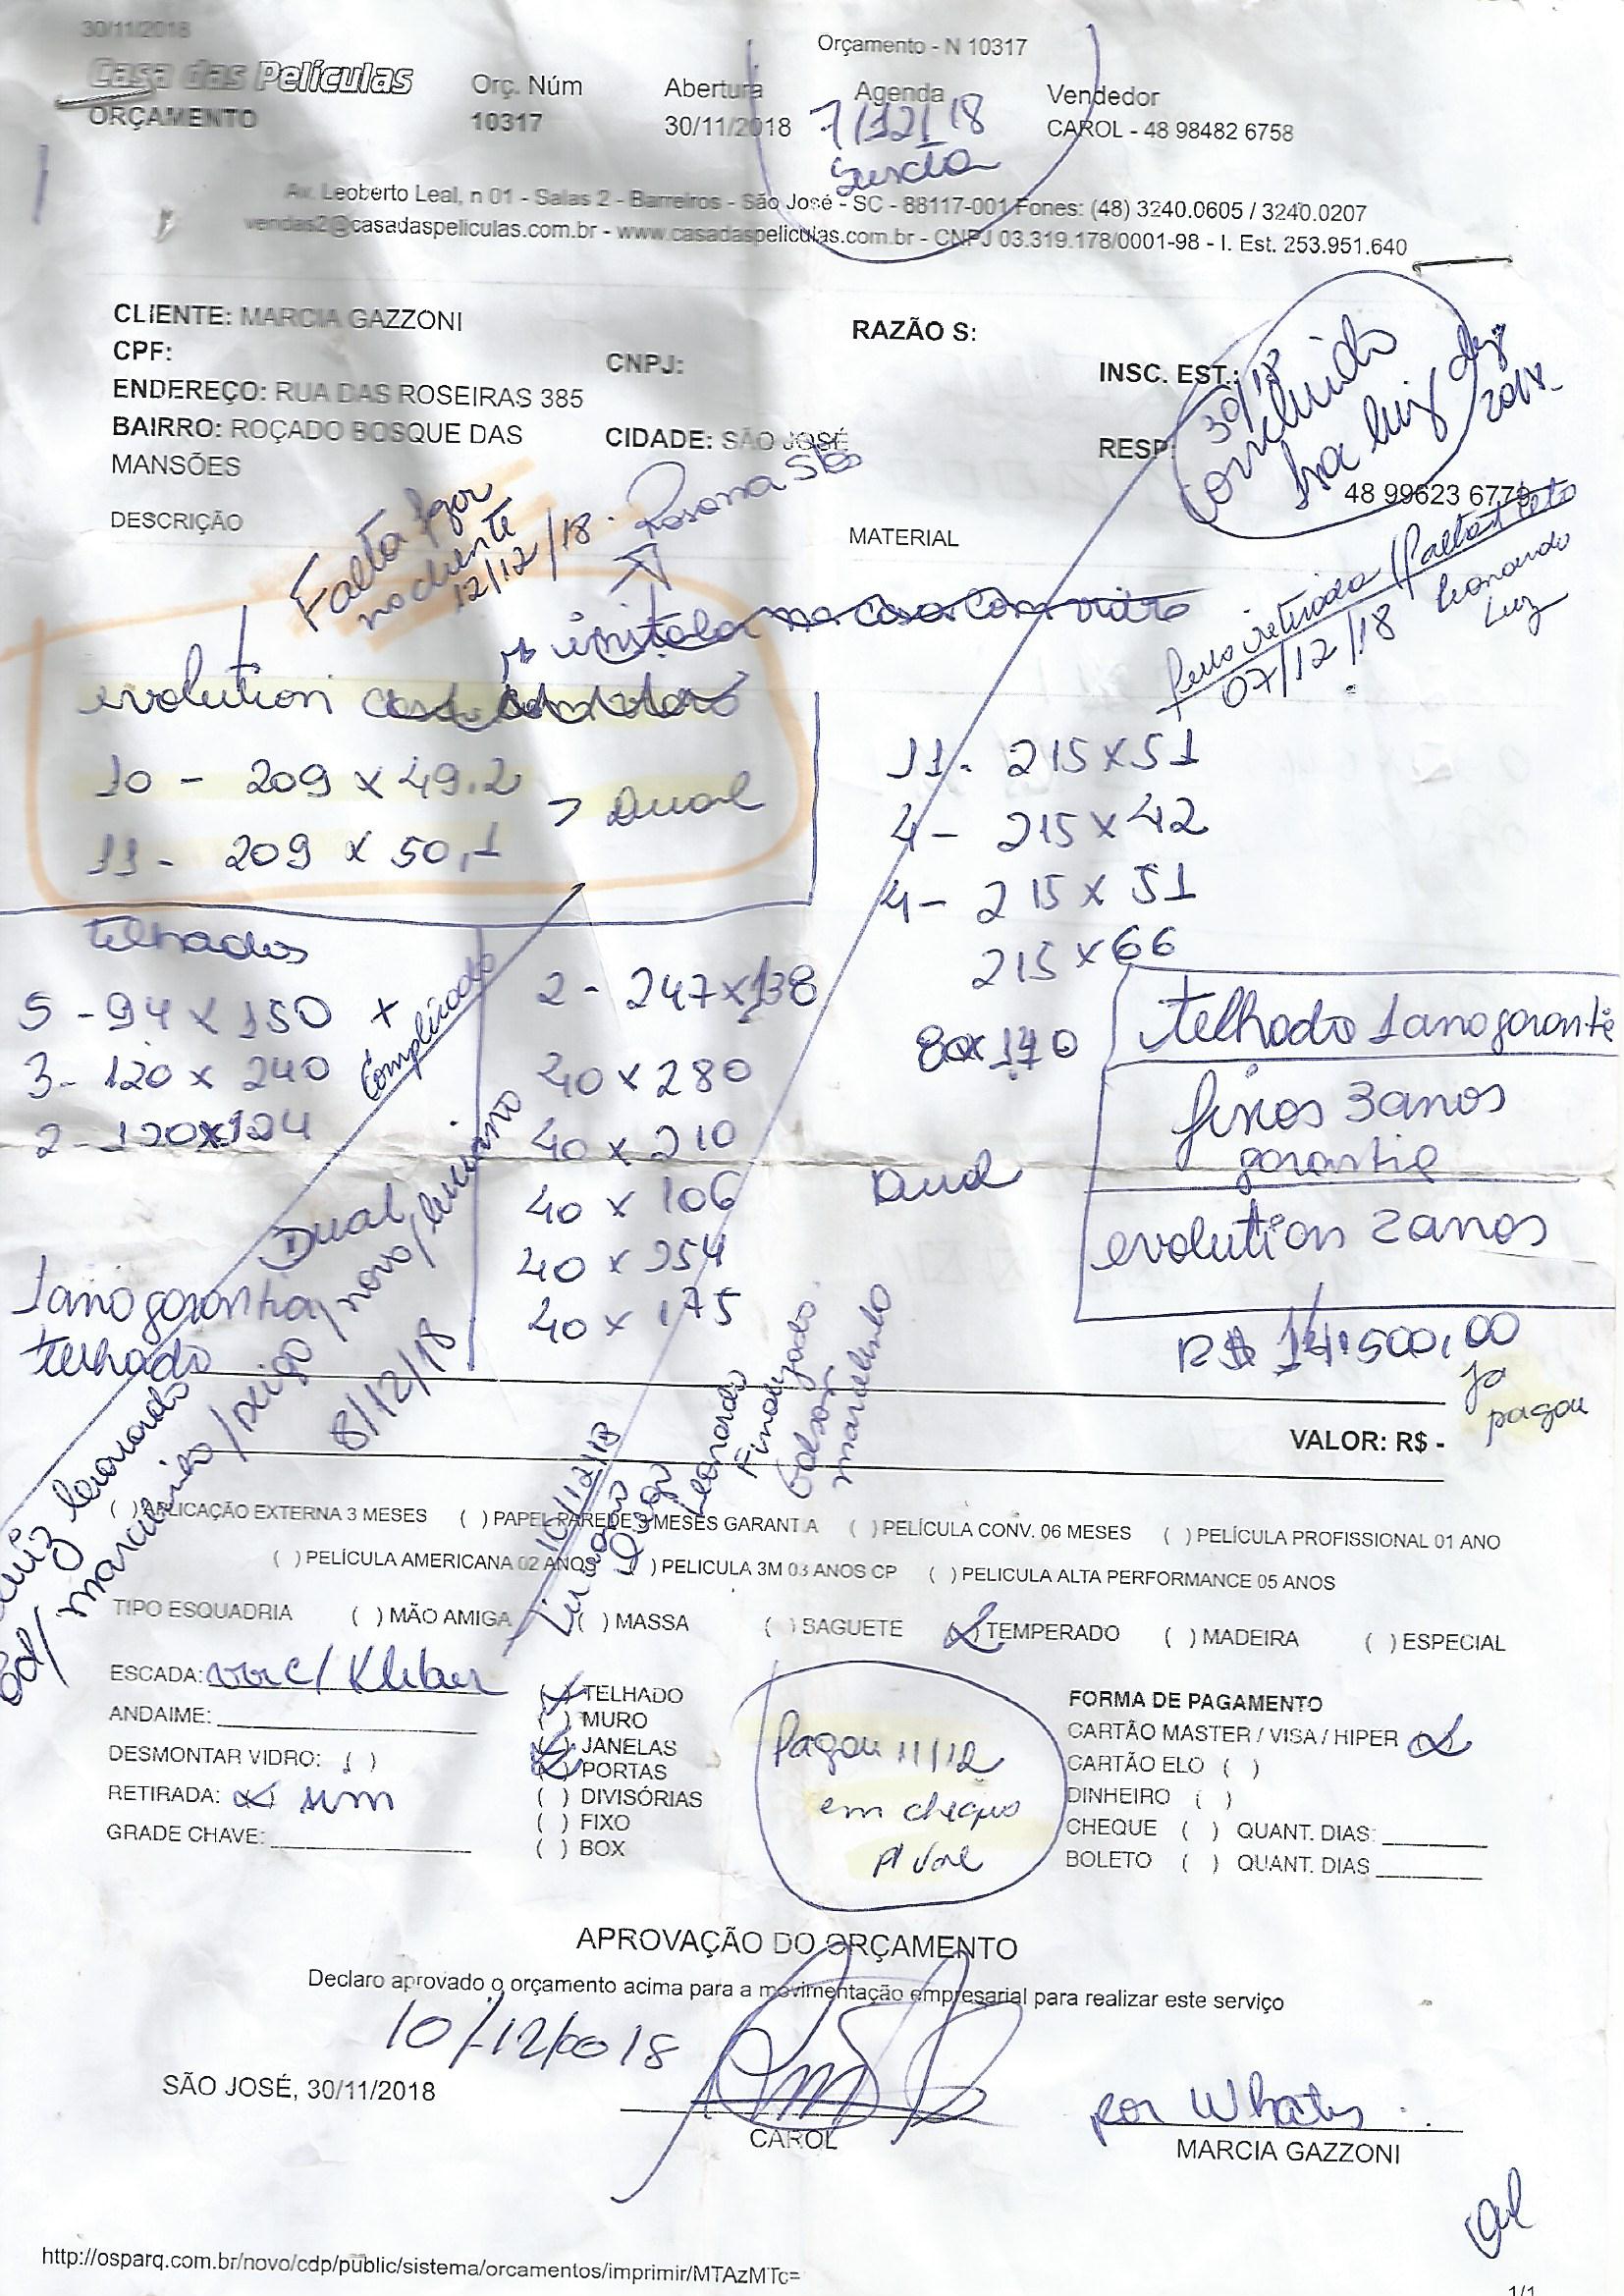 30/11/2018
Orçamento - N 10317
Casa das Películas
ORÇAMENTO
Orç. Núm
10317
Abertura
30/11/2018
Agenda
7/12/18
Vendedor
CAROL - 48 98482 6758
Av. Leoberto Leal, n 01 - Salas 2 - Barreiros - São José - SC - 88117-001 Fones: (48) 3240.0605 / 3240.0207
vendas2@casadaspeliculas.com.br - www.casadaspeliculas.com.br - CNPJ 03.319.178/0001-98 - I. Est. 253.951.640
CLIENTE: MARCIA GAZZONI
RAZÃO S:
CPF:
CNPJ:
INSC. EST.:
ENDEREÇO: RUA DAS ROSEIRAS 385
BAIRRO: ROÇADO BOSQUE DAS
MANSÕES
CIDADE: SÃO JOSÉ
RESP:
48 99623 6779
concluido
luiz
2018
DESCRIÇÃO
MATERIAL
Falta Igor
no cliente
12/12/18
Rosana
instala na casa com
07/12/18 Leonardo
Luz
evolution
10 - 209 x 49.2
11 - 209 x 50,1
> Dual
11 - 215 x 51
4 - 215 x 42
4 - 215 x 51
215 x 66
80 x 170
Dual
telhados
5 - 94 x 150 +
3 - 120 x 240
2 - 120 x 124
Complicado
2 - 247 x 138
40 x 280
40 x 210
40 x 106
40 x 254
40 x 175
telhado 1 ano garante
fixos 3 anos
garantia
evolution 2 anos
Dual
1 ano garantia
telhado
novo / luciano
8/12/18
R$ 14.500,00
já
pagou
VALOR: R$ -
luiz leonardo
marcelinho / diego
10/12/18
Luciano
Diego
Leonardo
Finalizado
marcelinho
( ) APLICAÇÃO EXTERNA 3 MESES ( ) PAPEL PAREDE 3 MESES GARANTIA ( ) PELÍCULA CONV. 06 MESES ( ) PELÍCULA PROFISSIONAL 01 ANO
( ) PELÍCULA AMERICANA 02 ANOS ( ) PELICULA 3M 03 ANOS CP ( ) PELICULA ALTA PERFORMANCE 05 ANOS
TIPO ESQUADRIA ( ) MÃO AMIGA ( ) MASSA ( ) SAGUETE (x) TEMPERADO ( ) MADEIRA ( ) ESPECIAL
ESCADA: ver c/ Kleber
ANDAIME:
DESMONTAR VIDRO: ( )
RETIRADA: (x) sim
GRADE CHAVE:
(x) TELHADO
( ) MURO
(x) JANELAS
(x) PORTAS
( ) DIVISÓRIAS
( ) FIXO
( ) BOX
Pagou 11/12
em cheque
FORMA DE PAGAMENTO
CARTÃO MASTER / VISA / HIPER (x)
CARTÃO ELO ( )
DINHEIRO ( )
CHEQUE ( ) QUANT. DIAS:
BOLETO ( ) QUANT. DIAS
APROVAÇÃO DO ORÇAMENTO
Declaro aprovado o orçamento acima para a movimentação empresarial para realizar este serviço
SÃO JOSÉ, 30/11/2018
CAROL
por Whats
MARCIA GAZZONI
http://osparq.com.br/novo/cdp/public/sistema/orcamentos/imprimir/MTAzMTc=
1/1